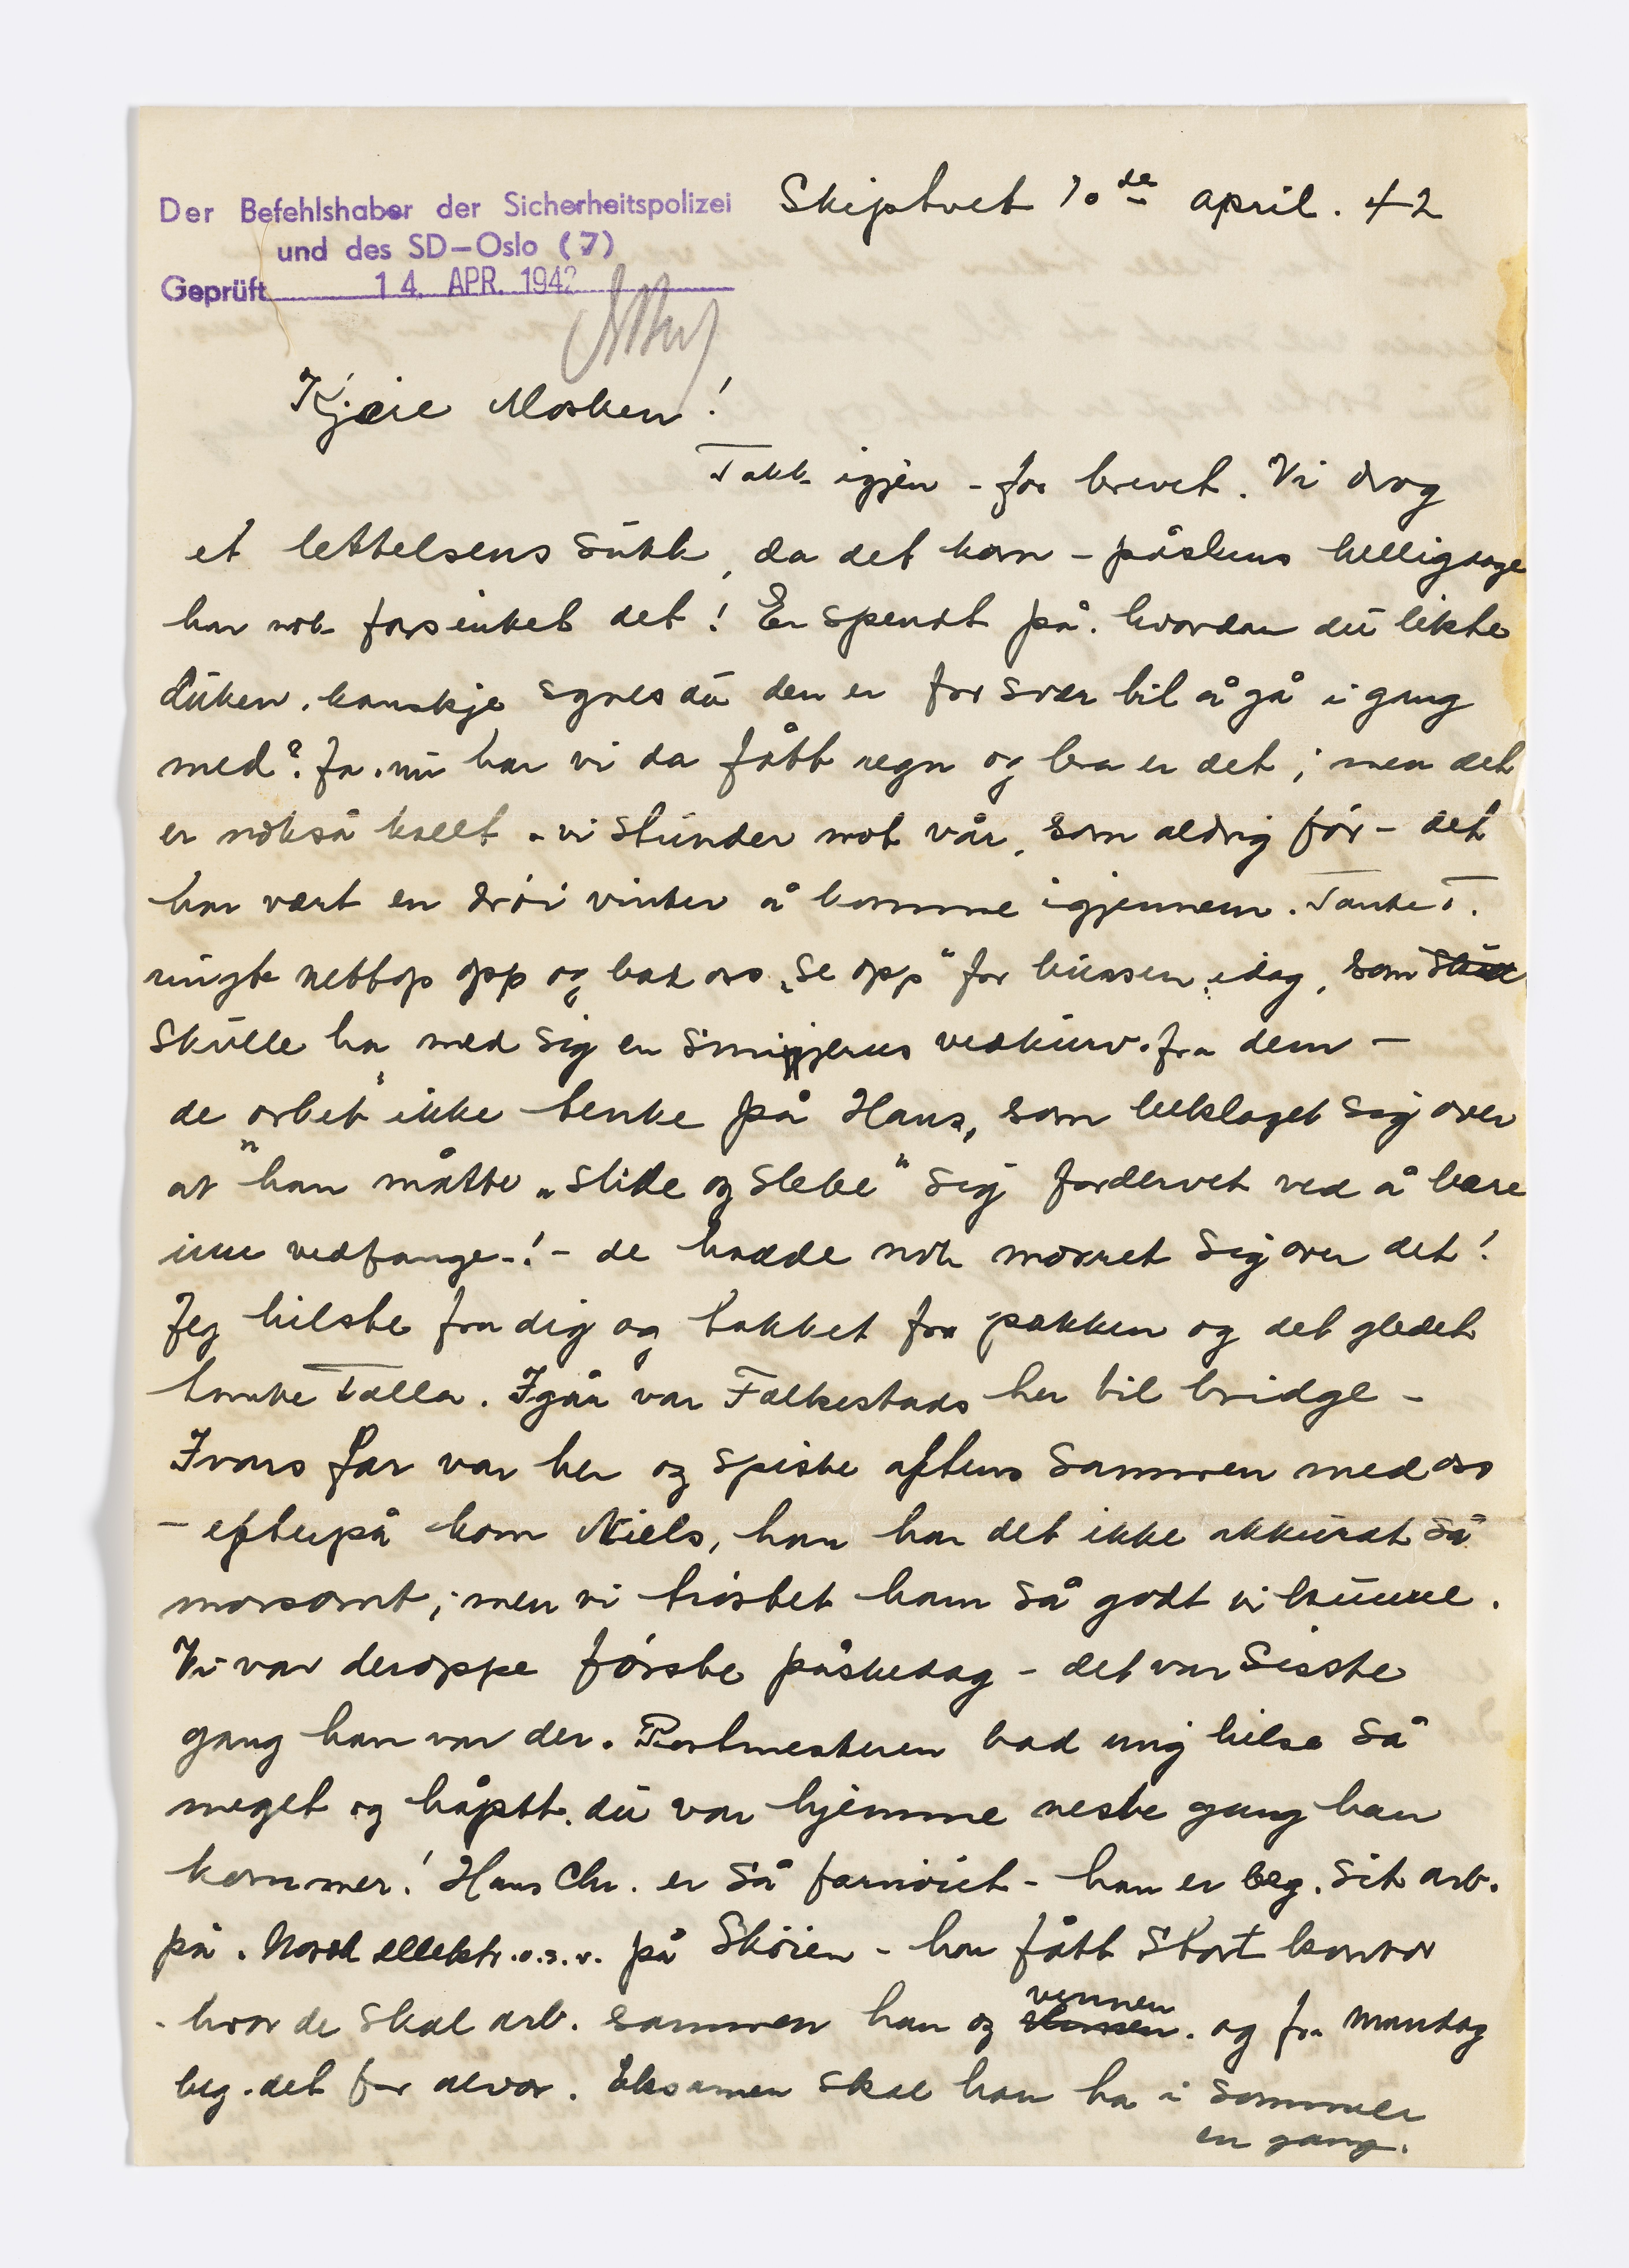 Der Befehlshaber der Sicherheitspolizei
und des SD-Oslo (7)
Geprüft 14. APR. 1942
Skiptvet 10de april. 42
Kjære Mosken!
Takk igjen - for brevet. Vi drog
et lettelsens sukk, da det kom - påskens helligdage
har nok forsinket det! Er spendt på. hvordan du likte
duken. kanskje synes du den er for svær til å gå i gang
med? Ja. nu har vi da fått regn og bra er det; men det
er nokså kallt - vi stunder mot vår, som aldrig før - det
har vært en drøi vinter å komme igjennem. Tante T.
ringte nettop opp og bad oss „se opp" for bussen idag, som
skulle ha med sig en vedkurv. fra dem -
de orket ikke tenke på Hans, som beklaget sig over
at han måtte „slite og slebe" sig fordervet ved å bære
inn vedfange-! - de hadde nok moret sig over det!
Jeg hilste fra dig og takket for pakken og det gledet
tante Talla. Igår var Falkestads her til bridge -
Ivars far var her og spiste aftens sammen med oss
- efterpå kom Niels, han har det ikke akkurat så
morsomt; men vi trøstet ham så godt vi kunne.
Vi var deroppe første påskedag - det var siste
gang han var der. Postmesteren bad mig hilse så
meget og håpet. du var hjemme neste gang han
kommer! Hans Chr. er så fornøiet - han er beg. sit arb.
på. Norsk ellektr. o.s.v. på Skøien - har fått stort kontor
- hvor de skal arb. sammen han og vennen. og fra mandag
beg. det for alvor. Eksamen skal han ha i sommer
en gang.